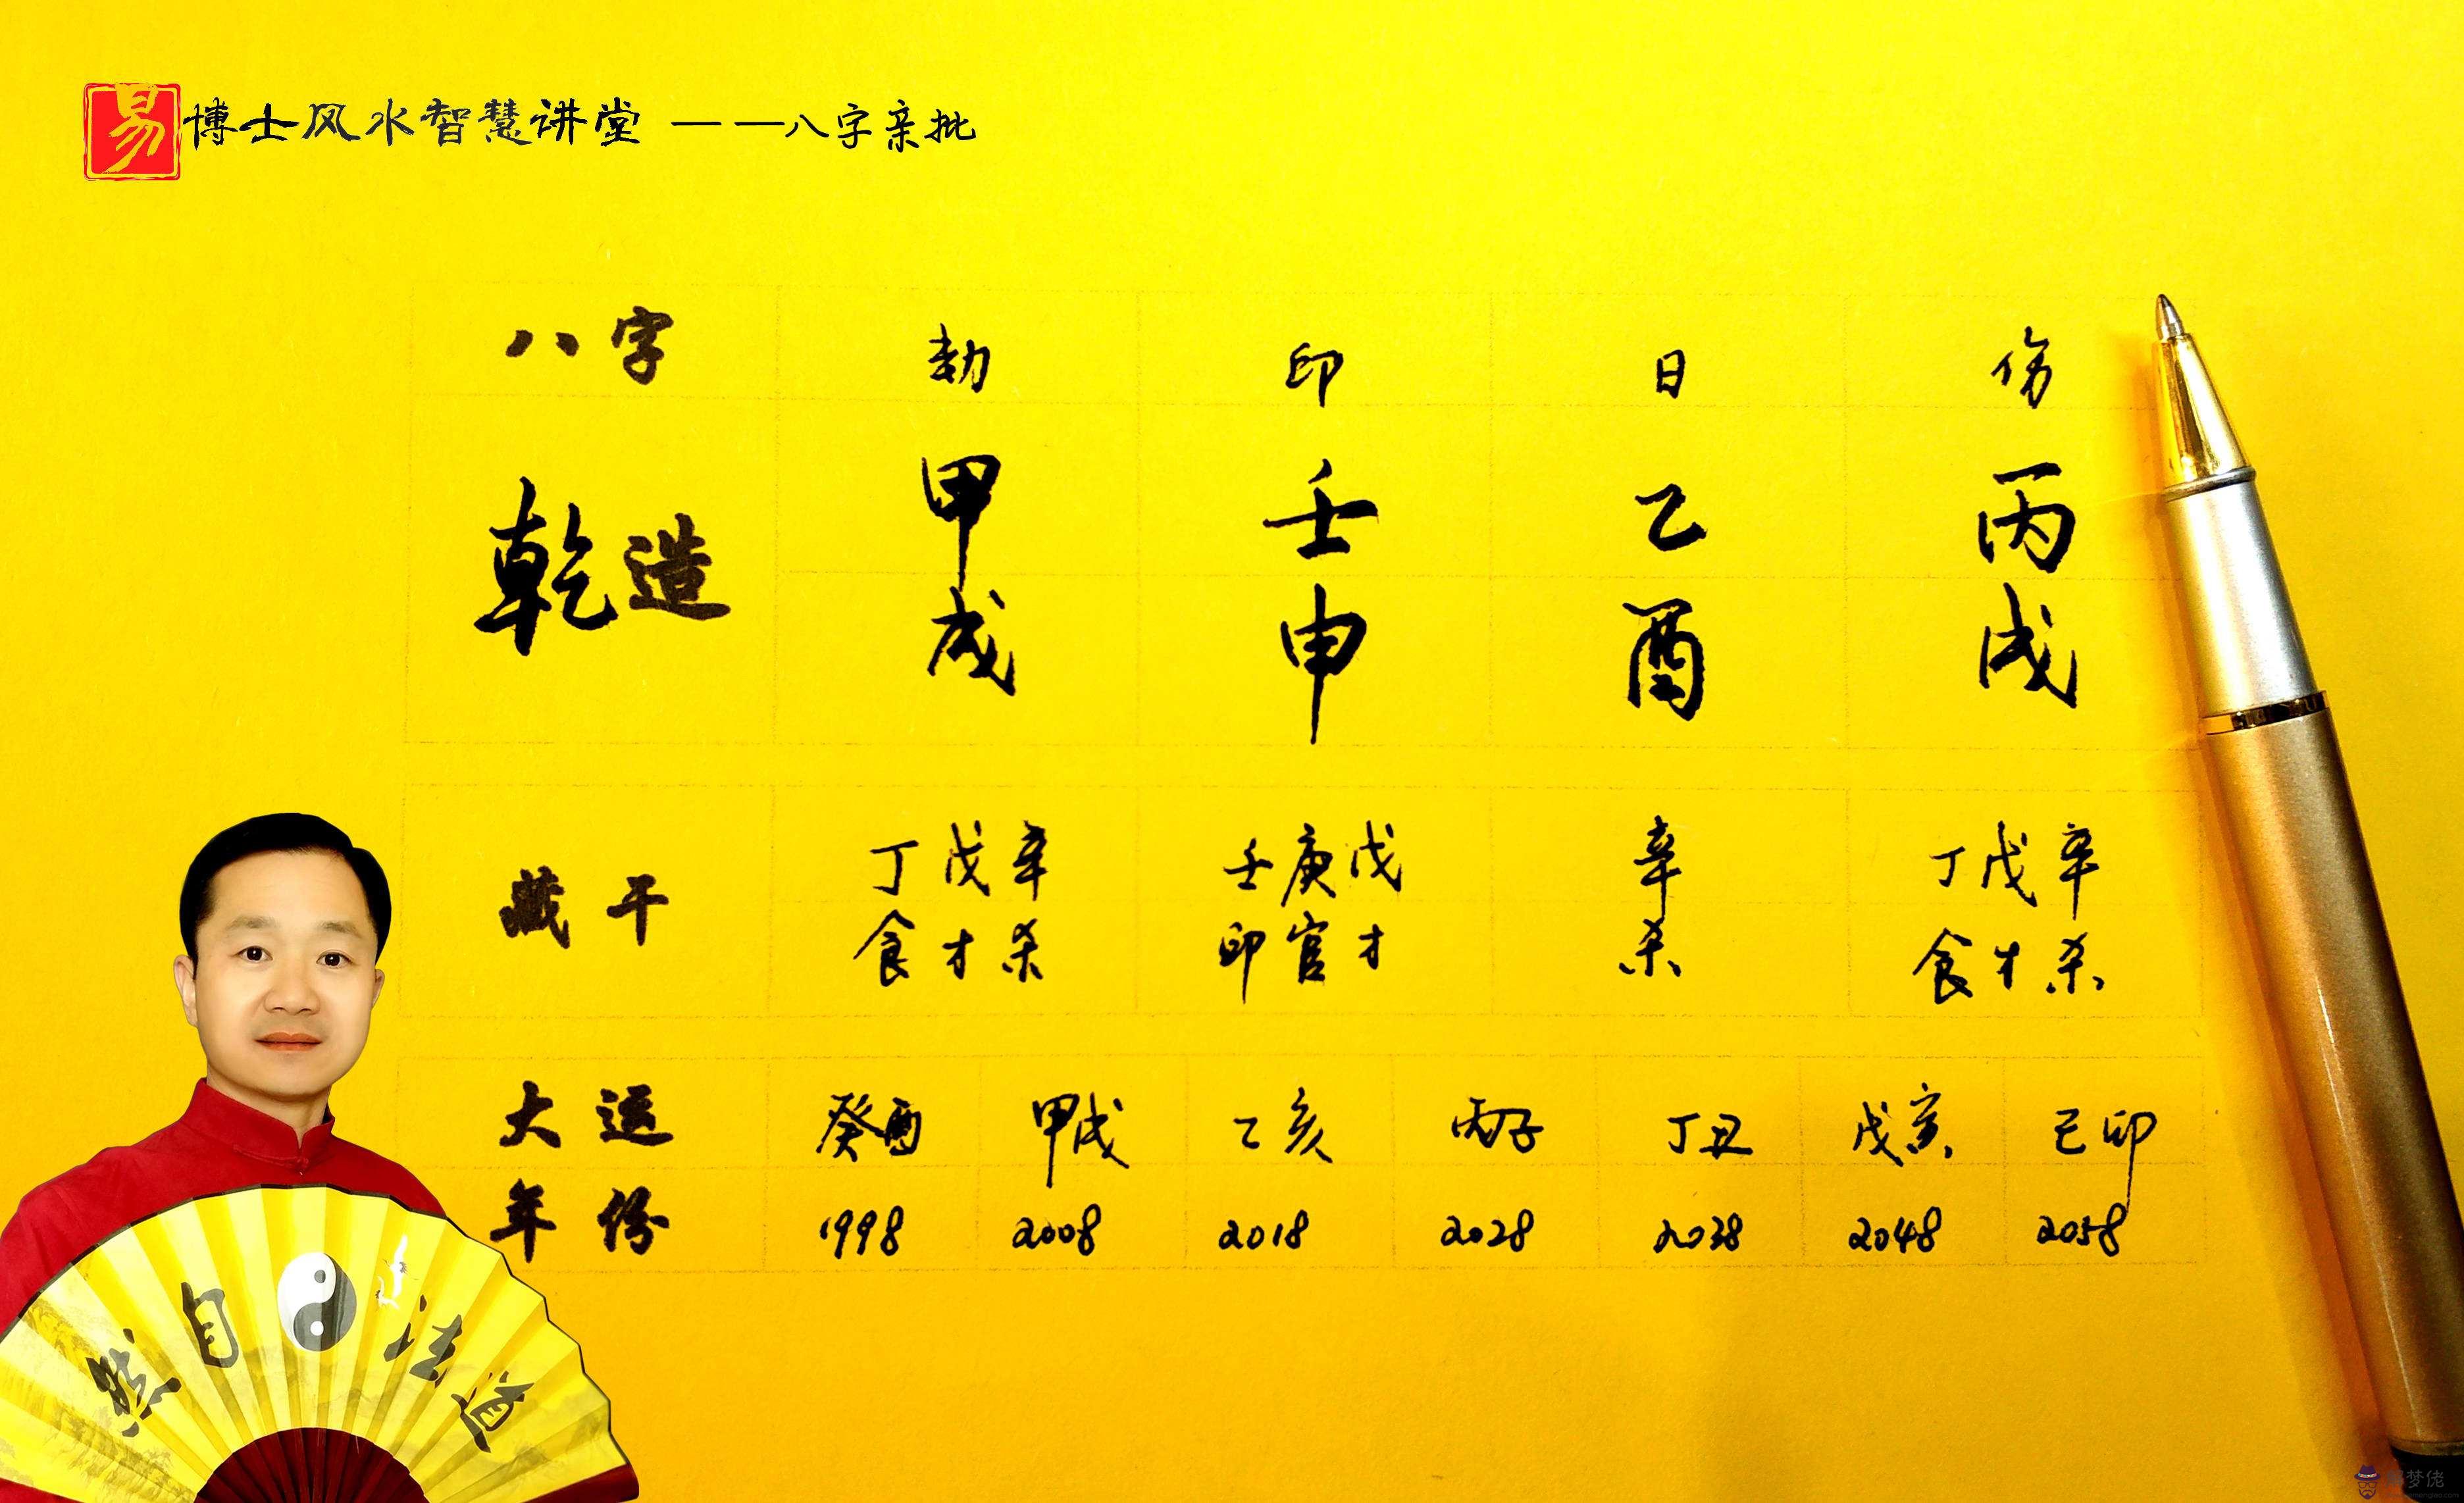 易博士风水智慧讲堂 ——八字亲批
八字 劫 印 日 伤
乾造 甲 壬 乙 丙
戌 申 酉 戌
藏干 丁戊辛 壬庚戊 辛 丁戊辛
食才杀 印官才 杀 食才杀
大运 癸酉 甲戌 乙亥 丙子 丁丑 戊寅 己卯
年份 1998 2008 2018 2028 2038 2048 2058
然自法道
梦佬